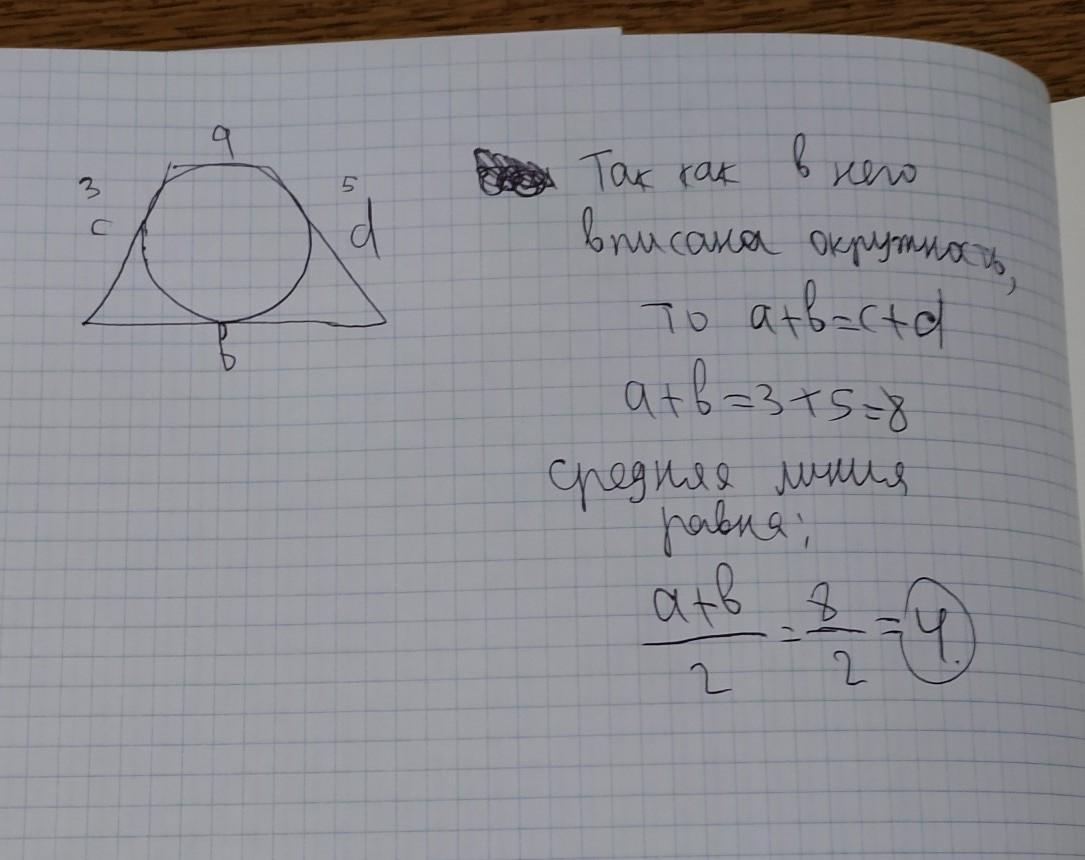 a
3
5
c
d
b
Так как в него
вписана окружность,
то a+b=c+d
a+b=3+5=8
средняя линия
равна;
a+b/2=8/2=4.